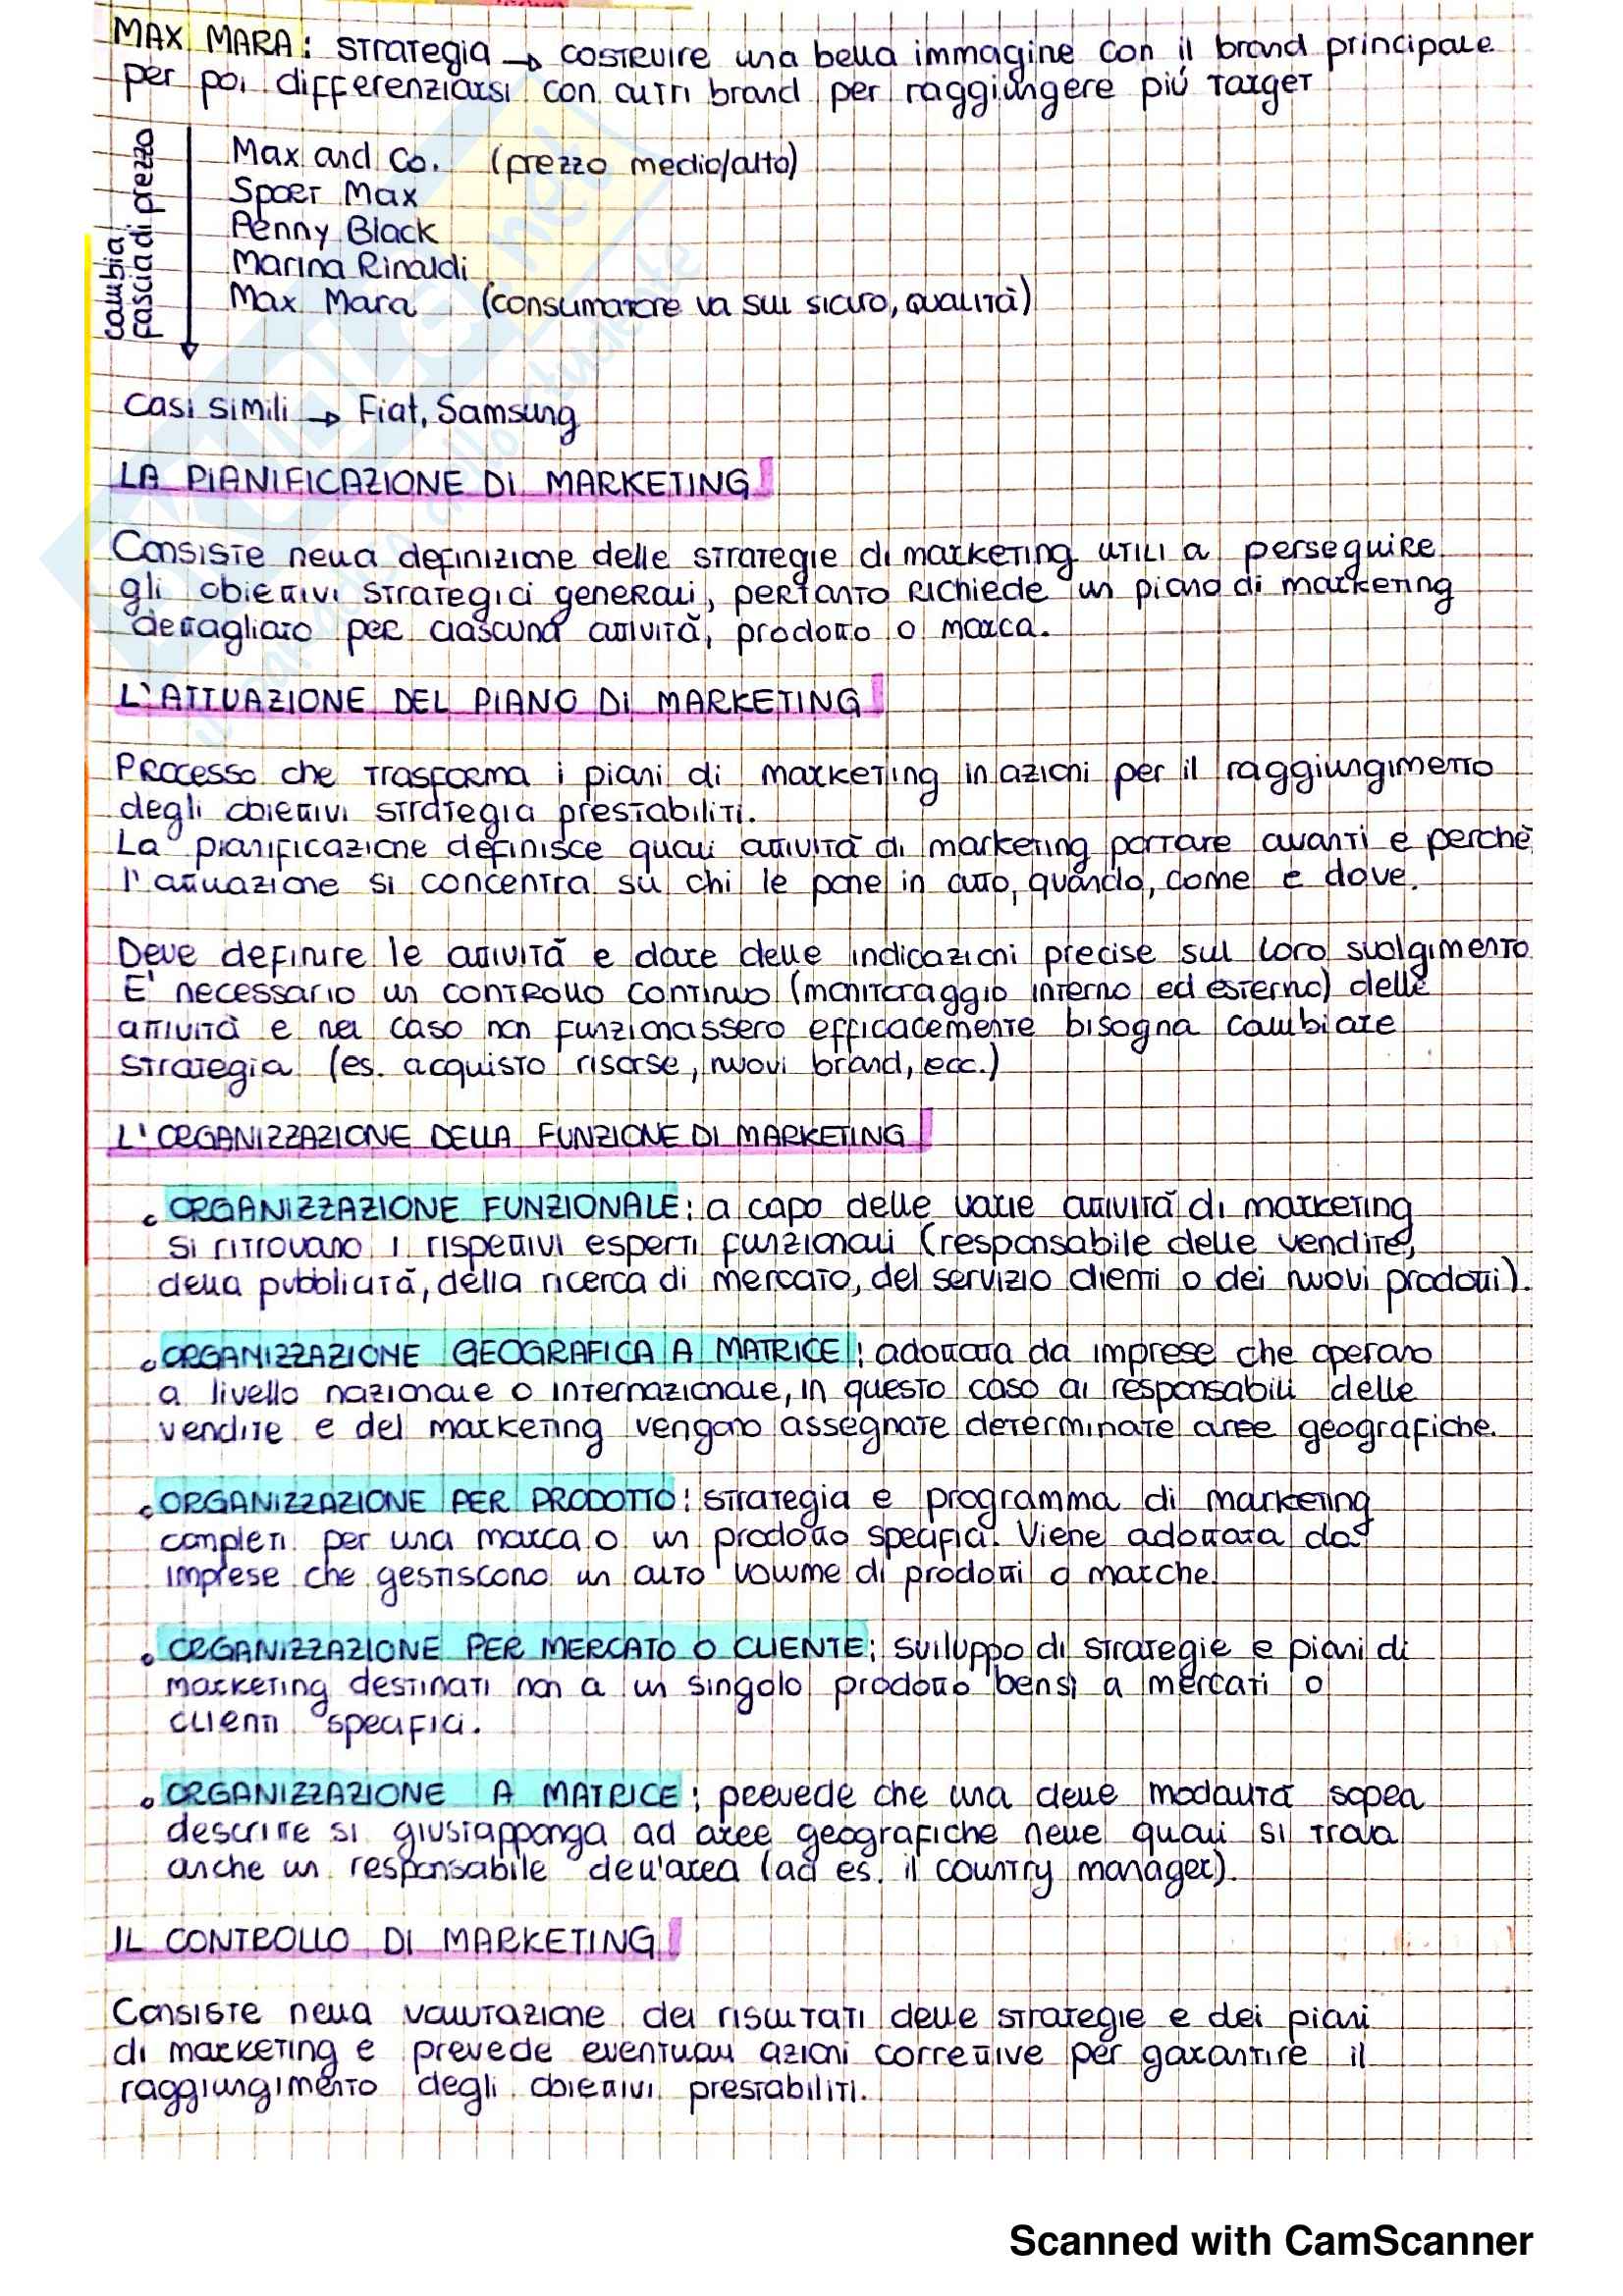 MAX MARA: strategia → costruire una bella immagine con il brand principale
per poi differenziarsi con altri brand per raggiungere più target
cambia
fascia di prezzo
Max and Co. (prezzo medio/alto)
Spoer Max
Penny Black
Marina Rinaldi
Max Mara (consumatore va sul sicuro, qualità)
Casi simili → Fiat, Samsung
LA PIANIFICAZIONE DI MARKETING
Consiste nella definizione delle strategie di marketing utili a perseguire
gli obiettivi strategici generali, pertanto richiede un piano di marketing
dettagliato per ciascuna attività, prodotto o marca.
L'ATTUAZIONE DEL PIANO DI MARKETING
Processo che trasforma i piani di marketing in azioni per il raggiungimento
degli obiettivi strategici prestabiliti.
La pianificazione definisce quali attività di marketing portare avanti e perchè
l'attuazione si concentra su chi le pone in atto, quando, come e dove.
Deve definire le attività e dare delle indicazioni precise sul loro svolgimento
E' necessario un controllo continuo (monitoraggio interno ed esterno) delle
attività e nel caso non funzionassero efficacemente bisogna cambiare
strategia (es. acquisto risorse, nuovi brand, ecc.)
L'ORGANIZZAZIONE DELLA FUNZIONE DI MARKETING
• ORGANIZZAZIONE FUNZIONALE: a capo delle varie attività di marketing
si ritrovano i rispettivi esperti funzionali (responsabile delle vendite,
della pubblicità, della ricerca di mercato, del servizio clienti o dei nuovi prodotti).
• ORGANIZZAZIONE GEOGRAFICA A MATRICE: adottata da imprese che operano
a livello nazionale o internazionale, in questo caso ai responsabili delle
vendite e del marketing vengono assegnate determinate aree geografiche.
• ORGANIZZAZIONE PER PRODOTTO: strategia e programma di marketing
completi per una marca o un prodotto specifici. Viene adottata da
imprese che gestiscono un alto volume di prodotti o marche.
• ORGANIZZAZIONE PER MERCATO O CLIENTE: sviluppo di strategie e piani di
marketing destinati non a un singolo prodotto bensì a mercati o
clienti specifici.
• ORGANIZZAZIONE A MATRICE: prevede che una delle modalità sopra
descritte si giustapponga ad aree geografiche nelle quali si trova
anche un responsabile dell'area (ad es. il country manager).
IL CONTROLLO DI MARKETING
Consiste nella valutazione dei risultati delle strategie e dei piani
di marketing e prevede eventuali azioni correttive per garantire il
raggiungimento degli obiettivi prestabiliti.
Scanned with CamScanner